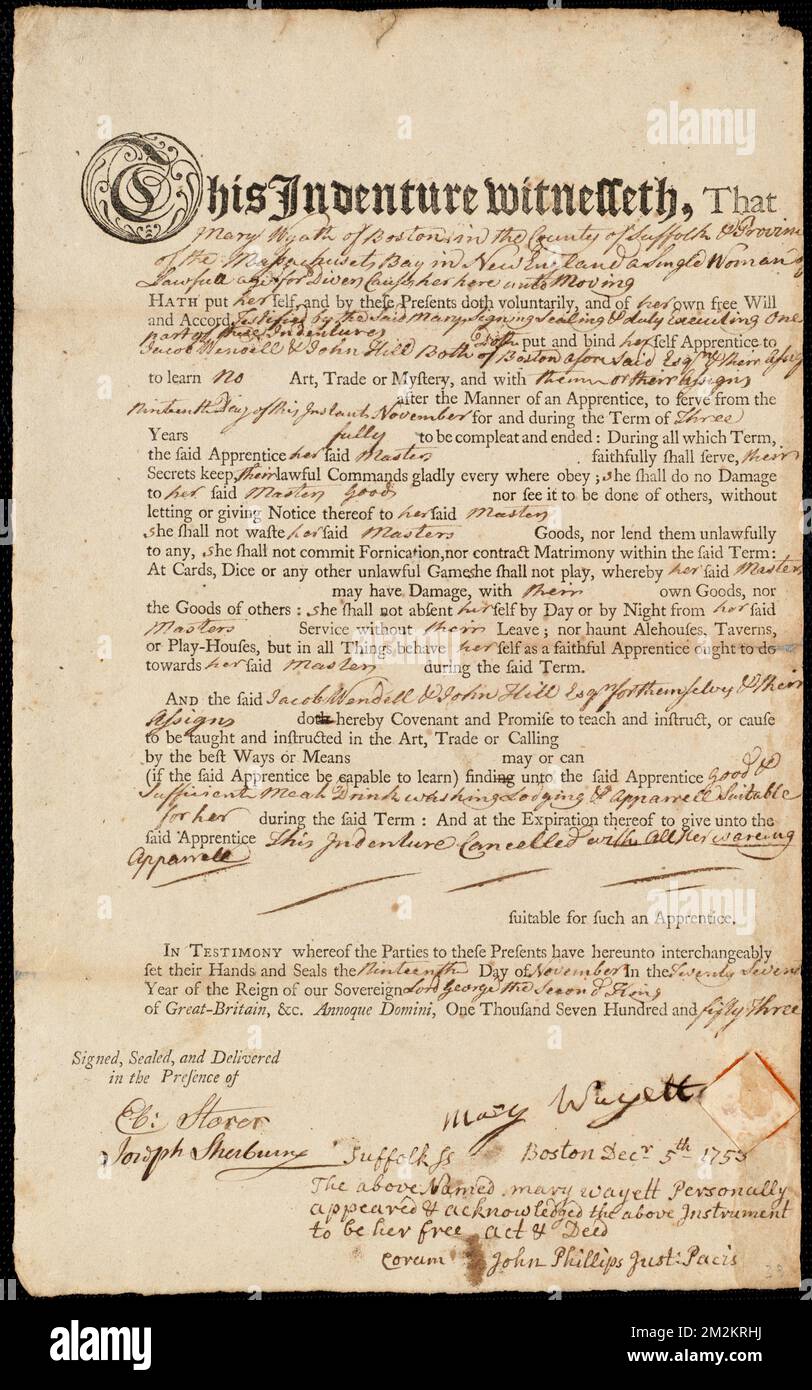 This Indenture witnesseth, That
Mary Wyath of Boston, in the County of Suffolk & Province
of the Massachusets Bay in New England a Single Woman of
Lawfull age for Divers Causes her here unto Moving
HATH put her self, and by theſe Preſents doth voluntarily, and of her own free Will
and Accord, Testified by the Said Mary Signing Sealing & duly Executing One
part of these Indentures Doth put and bind her ſelf Apprentice to
Jacob Wendell & John Hill Both of Boston afore Said Esqrs & their Assigs
to learn no Art, Trade or Myſtery, and with them or their Assigns
after the Manner of an Apprentice, to ſerve from the
Ninteenth Day of this Instant November for and during the Term of Three
Years fully to be compleat and ended: During all which Term,
the ſaid Apprentice her ſaid Masters faithfully ſhall ſerve, their
Secrets keep, their lawful Commands gladly every where obey; she ſhall do no Damage
to her ſaid Masters Goods nor ſee it to be done of others, without
letting or giving Notice thereof to her ſaid Masters
she ſhall not waſte her ſaid Masters Goods, nor lend them unlawfully
to any, she ſhall not commit Fornication, nor contract Matrimony within the ſaid Term:
At Cards, Dice or any other unlawful Game she ſhall not play, whereby her ſaid Masters
may have Damage, with their own Goods, nor
the Goods of others: she ſhall not abſent herſelf by Day or by Night from her ſaid
Masters Service without their Leave; nor haunt Alehouſes, Taverns,
or Play-Houſes, but in all Things behave herſelf as a faithful Apprentice ought to do
towards her ſaid Masters during the ſaid Term.
AND the ſaid Jacob Wendell & John Hill Esqrs for themselves & their
Assigns doth hereby Covenant and Promiſe to teach and inſtruct, or cauſe
to be taught and inſtructed in the Art, Trade or Calling
by the beſt Ways or Means may or can
(if the ſaid Apprentice be capable to learn) finding unto the ſaid Apprentice Good &
Sufficient Meat Drink washing Lodging & Apparrell Suitable
for her during the ſaid Term: And at the Expiration thereof to give unto the
ſaid Apprentice This Indenture Cancelled with All Her wareing
Apparrell
ſuitable for ſuch an Apprentice.
IN TESTIMONY whereof the Parties to theſe Preſents have hereunto interchangeably
ſet their Hands and Seals the Ninteenth Day of November In the Twenty Seventh
Year of the Reign of our Sovereign Lord George the Second King
of Great-Britain, &c. Annoque Domini, One Thouſand Seven Hundred and fifty Three
Signed, Sealed, and Delivered
in the Preſence of
Eb: Storer
Mary Wayett
Joseph Sherburne
Suffolk Ss Boston Decr 5th 1753
The above Named mary wayett Personally
appeared & acknowledged the above Instrument
to be her free act & Deed
coram John Phillips Just: Pacis
alamy
Image ID: 2M2KRHJ
www.alamy.com